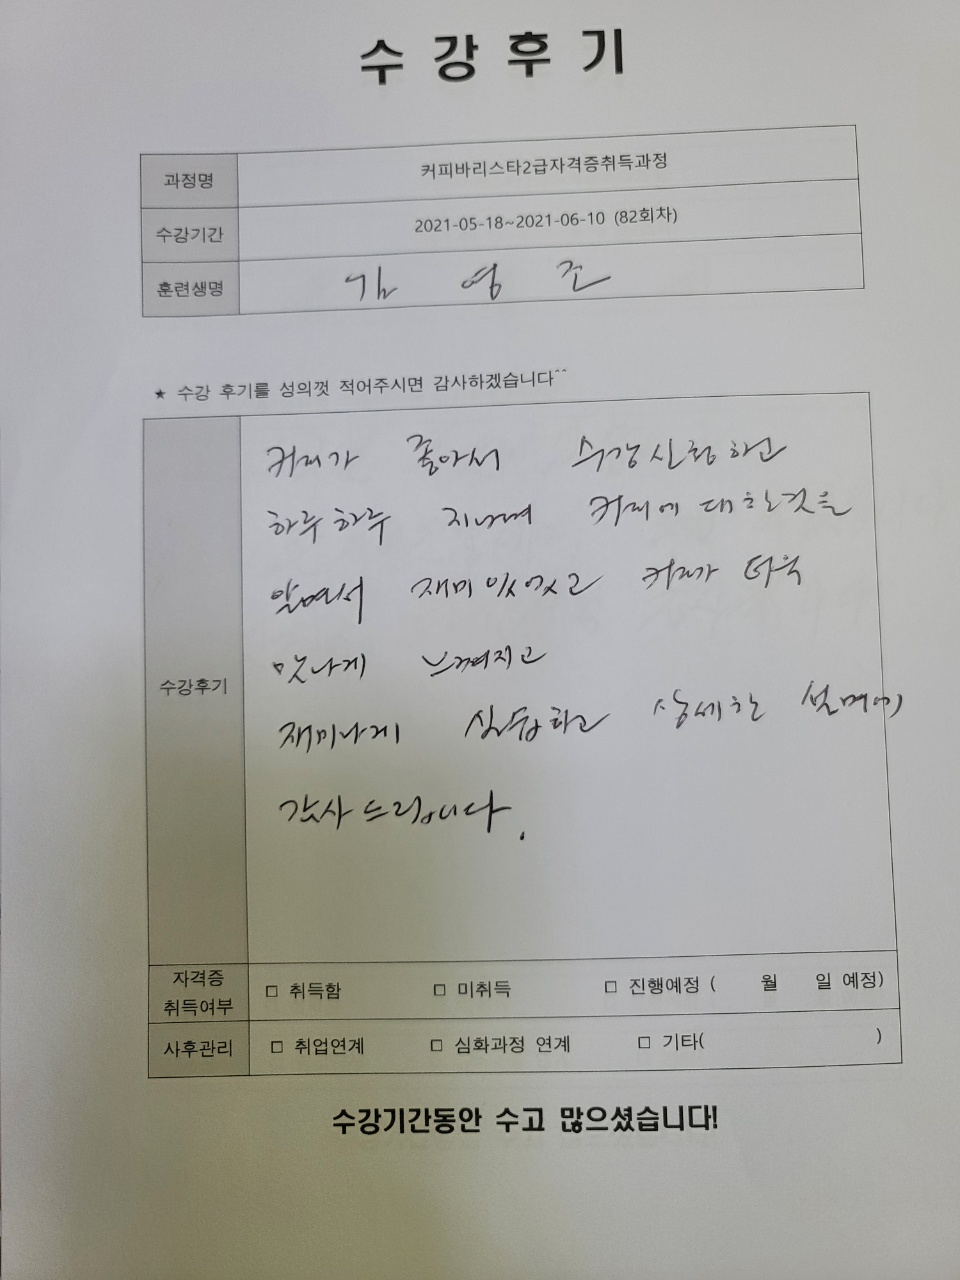 수강후기
과정명 커피바리스타2급자격증취득과정
수강기간 2021-05-18~2021-06-10 (82회차)
훈련생명 김 영 조
★ 수강 후기를 성의껏 적어주시면 감사하겠습니다^^
커피가 좋아서 수강신청하고
하루하루 지나며 커피에 대한것을
알면서 재미있었고 커피가 더욱
맛나게 느껴지고
수강후기
재미나게 실습하고 상세한 설명에
감사드립니다.
자격증 취득여부 □ 취득함 □ 미취득 □ 진행예정 ( 월 일 예정)
사후관리 □ 취업연계 □ 심화과정 연계 □ 기타( )
수강기간동안 수고 많으셨습니다!